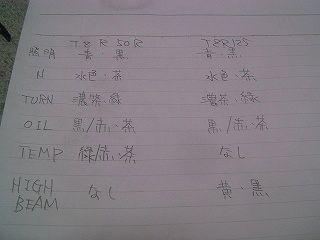 TSR50R TSR125
照明 青・黒 青・黒
N 水色・茶 水色・茶
TURN 濃茶・緑 濃茶・緑
OIL 黒/赤・茶 黒/赤・茶
TEMP 緑/赤・茶 なし
HIGH BEAM なし 黄・黒